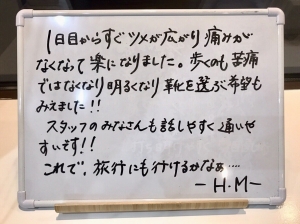 1日目からすぐツメが広がり痛みが
なくなって楽になりました。歩くのも苦痛
ではなくなり明るくなり靴を選ぶ希望も
みえました!!
スタッフのみなさんも話しやすく通いや
すいです!!
これで、旅行にも行けるかなぁ……
－H.M－